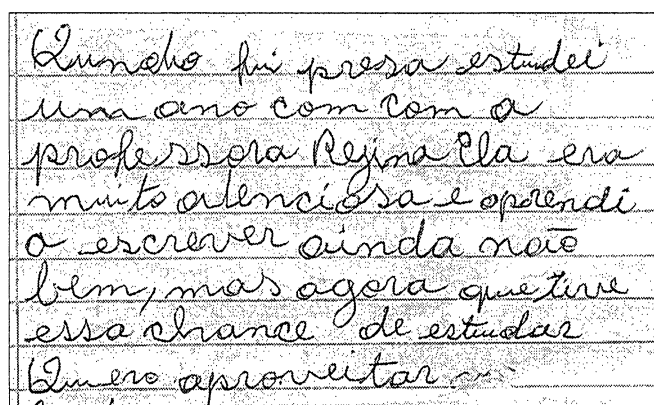 Quando fui presa estudei
um ano com com a
professora Regina Ela era
muito atenciosa e aprendi
a escrever ainda não
bem, mas agora que tive
essa chance de estudar
Quero aproveitar.